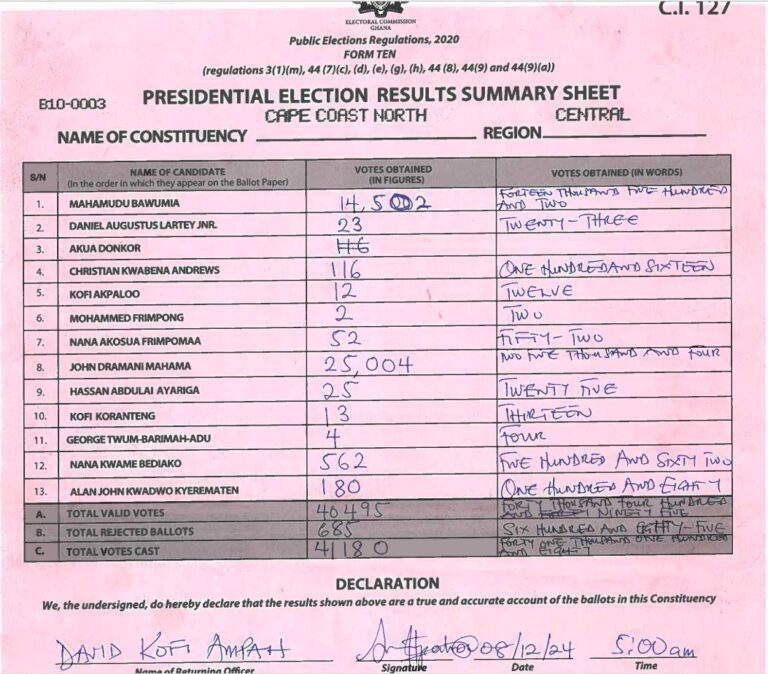 C.I. 127
ELECTORAL COMMISSION
GHANA
Public Elections Regulations, 2020
FORM TEN
(regulations 3(1)(m), 44 (7)(c), (d), (e), (g), (h), 44 (8), 44(9) and 44(9)(a))
B10-0003 PRESIDENTIAL ELECTION RESULTS SUMMARY SHEET
CAPE COAST NORTH CENTRAL
NAME OF CONSTITUENCY REGION
S/N NAME OF CANDIDATE (In the order in which they appear on the Ballot Paper) VOTES OBTAINED (IN FIGURES) VOTES OBTAINED (IN WORDS)
1. MAHAMUDU BAWUMIA 14,5002 FORTEEN THOUSAND FIVE HUNDRED AND TWO
2. DANIEL AUGUSTUS LARTEY JNR. 23 TWENTY-THREE
3. AKUA DONKOR
4. CHRISTIAN KWABENA ANDREWS 116 ONE HUNDRED AND SIXTEEN
5. KOFI AKPALOO 12 TWELVE
6. MOHAMMED FRIMPONG 2 TWO
7. NANA AKOSUA FRIMPOMAA 52 FIFTY-TWO
8. JOHN DRAMANI MAHAMA 25,004 FIVE THOUSAND AND FOUR
9. HASSAN ABDULAI AYARIGA 25 TWENTY FIVE
10. KOFI KORANTENG 13 THIRTEEN
11. GEORGE TWUM-BARIMAH-ADU 4 FOUR
12. NANA KWAME BEDIAKO 562 FIVE HUNDRED AND SIXTY TWO
13. ALAN JOHN KWADWO KYEREMATEN 180 ONE HUNDRED AND EIGHTY
A. TOTAL VALID VOTES 40495 FORTY THOUSAND FOUR HUNDRED AND NINETY FIVE
B. TOTAL REJECTED BALLOTS 685 SIX HUNDRED AND EIGHTY-FIVE
C. TOTAL VOTES CAST 41180 FORTY ONE THOUSAND ONE HUNDRED AND EIGHTY
DECLARATION
We, the undersigned, do hereby declare that the results shown above are a true and accurate account of the ballots in this Constituency
DAVID KOFI AMPAH 08/12/24 5:00am
Name of Returning Officer Signature Date Time